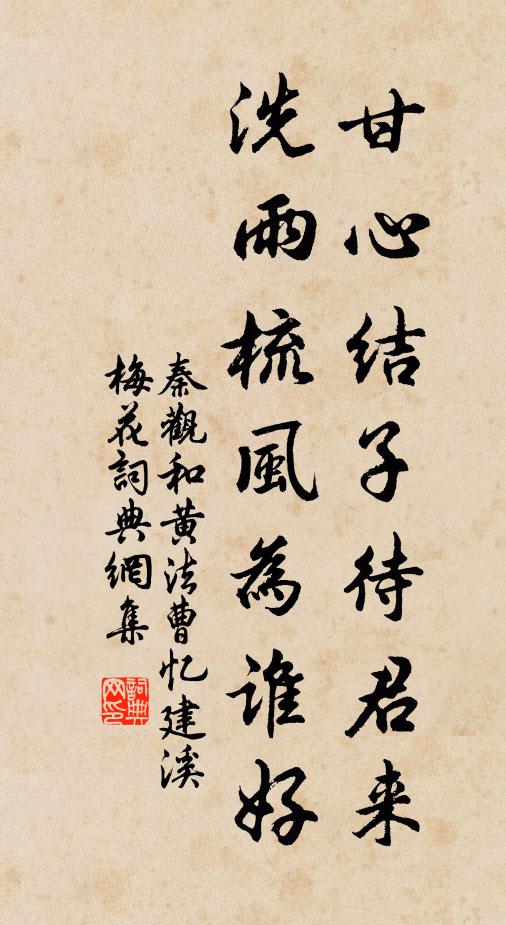 甘心结子待君来
洗雨梳風為谁好
秦觀和黄法曹忆建溪
梅花詞典網集
詞典
网印